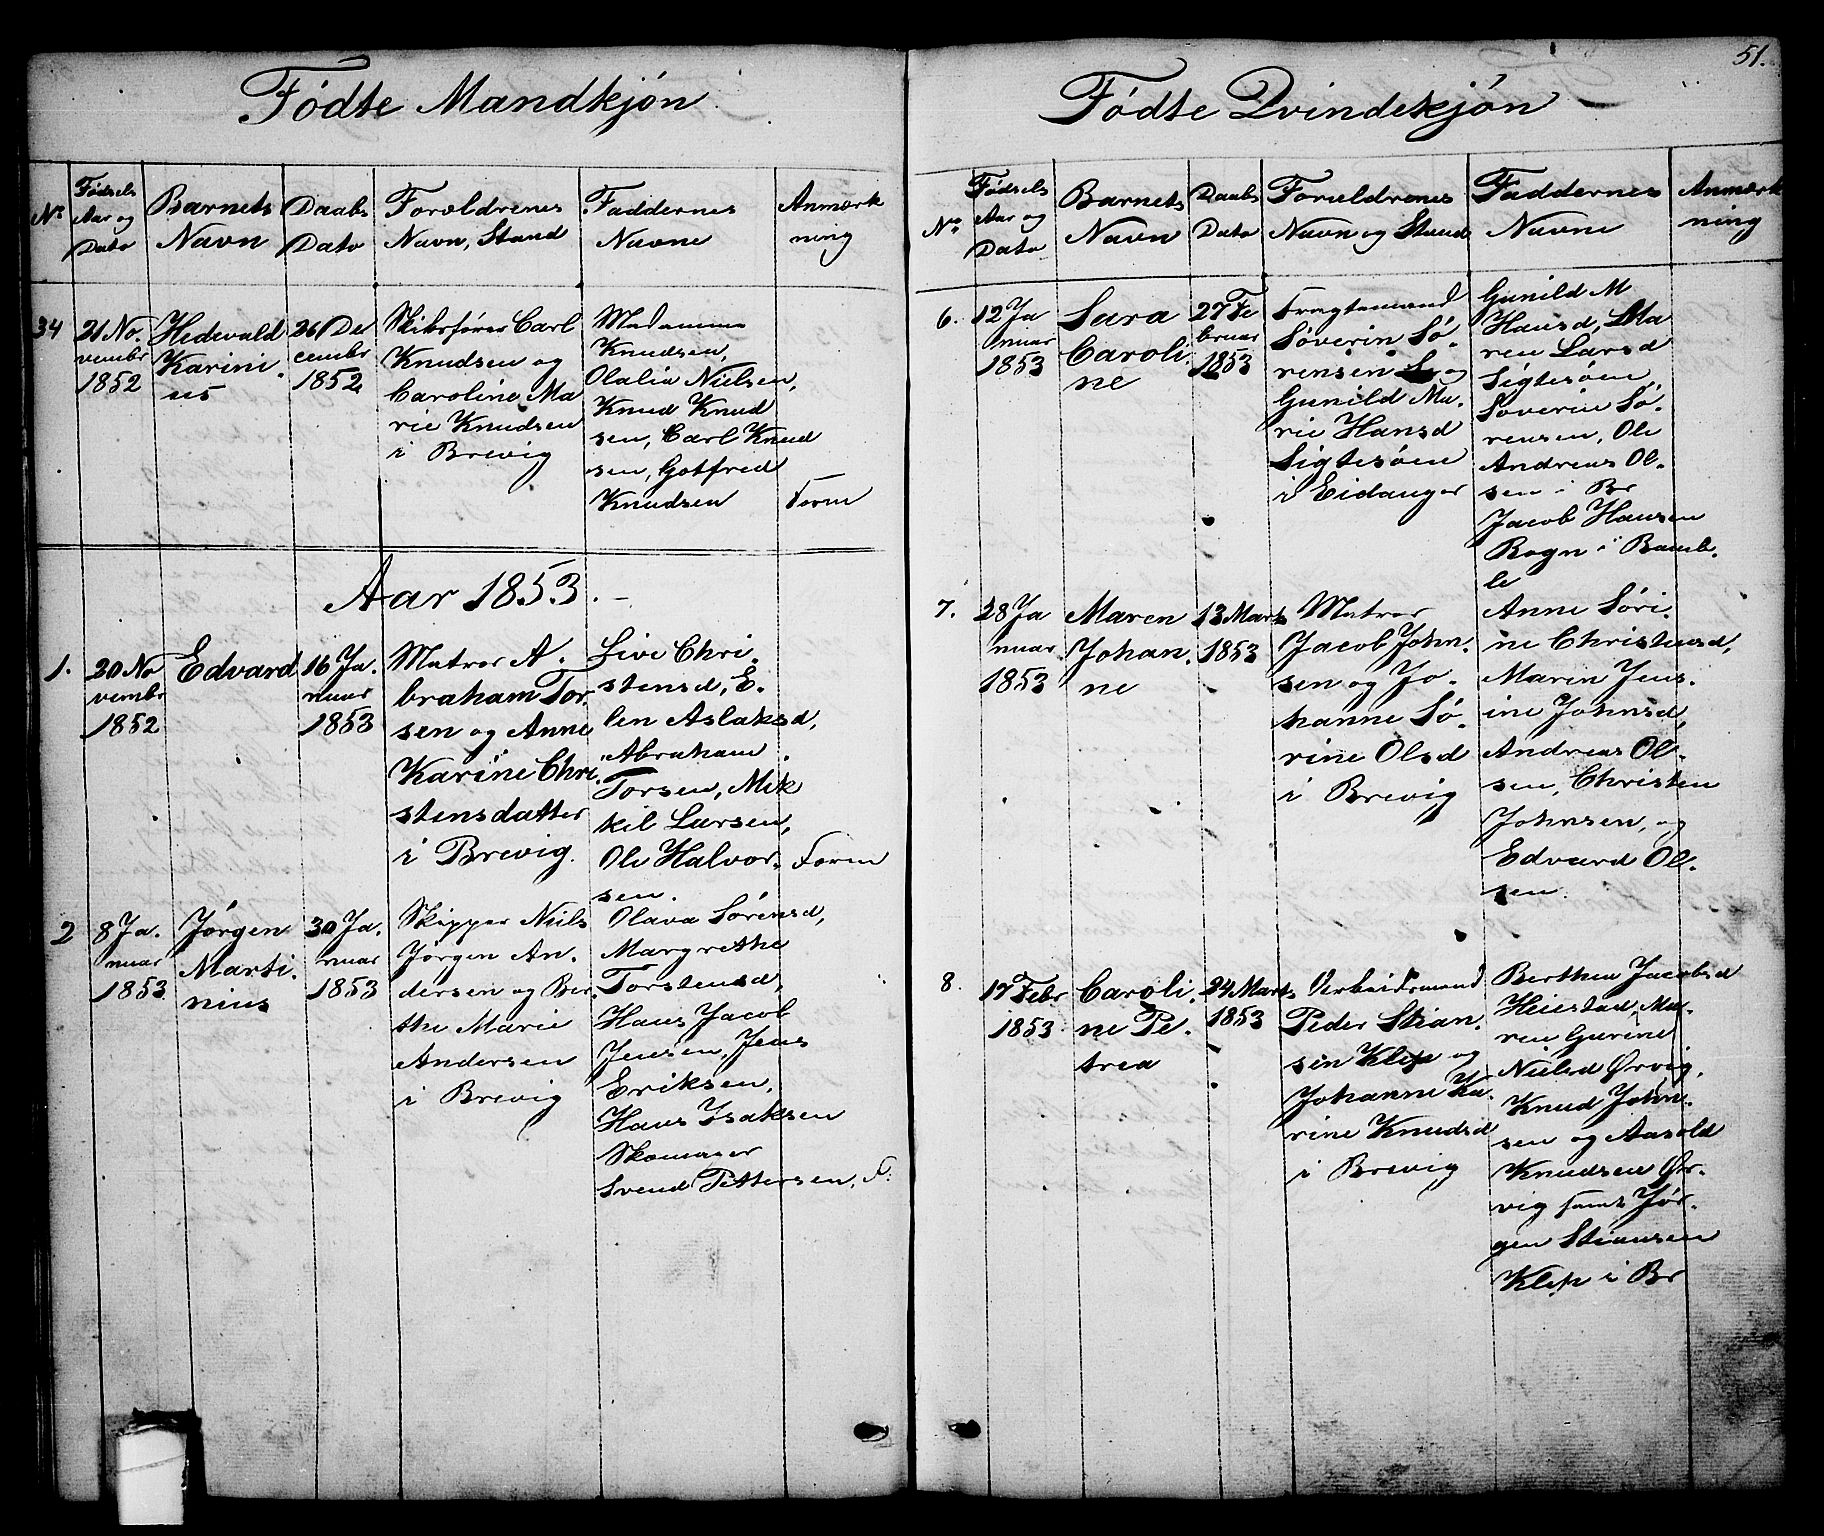 Fødte Mandkjøn
No
Fødsels
Aar og
Dato
Barnets
Navn
Daabs
Dato
Forældrenes
Navn, Stand
Faddernes
Navne
Anmærk
ning
34
21 No.
vembr
1852
Hedevald
Karini.
us
26 De
cembr
1852
Skibsfører Carl
Knudsen og
Caroline Ma
rie Knudsen
i Brevig
Madamme
Knudsen,
Olalia Nielsen,
Knud Knud
sen, Carl Knud
sen, Gotfred
Knudsen
Form
Aar 1853. —
1.
20 No
vembr
1852
Edvard
16 Ja.
nuar
1853
Matros A.
braham Tor.
sen og Anne
Karine Chri.
stensdatter
i Brevig.
Live Chri.
stensd, E.
len Aslaksd,
Abraham
Torsen, Mik
kil Larsen,
Ole Halvor.
sen.
Form
2
8 Ja.
nuar
1853
Jørgen
Marti.
nius
30 Ja.
nuar
1853
Skipper Niels
Jørgen An.
dersen og Ber.
the Marie
Andersen
i Brevig
Olava Sørensd,
Margrethe
Torstensd,
Hans Jacob
Jensen, Jens
Eriksen,
Hans Isaksen
Skomager
Svend Pettersen, F.
51.
Fødte Qvindekjøn
No
Fødsels
Aar og
Dato
Barnets
Navn
Daabs
Dato
Forældrenes
Navn og Stand
Faddernes
Navne
Anmærk
ning
6.
12 Ja
nuar
1853
Sara
Caroli.
ne
27 Fe
bruar
1853
Fragtemand
Søverin Sø.
rensen og
Gunild Ma.
rie Hansd
Sigtesøen
i Eidanger
Gunild M
Hansd, Ma
ren Larsd
Sigtesøen,
Søverin Sø.
rensen, Ole
Andreas Ol.
sen i Br
Jacob Hansen
Rogn i Bamb.
le
7.
28 Ja
nuar
1853
Maren
Johan.
ne
13 Marts
1853
Matros
Jacob John.
sen og Jo.
hanne Sø.
rine Olsd
i Brevig
Anne Søri.
ne Christensd,
Maren Jens.
ine Johnsd,
Andreas Ol.
sen, Christen
Johnsen, og
Edvard Ol.
sen.
8.
17 Febr
1853
Caroli.
ne Pe.
trea
24 Marts
1853
Arbeidsmand
Peder Stian.
sen Klep og
Johanne Ka.
rine Knudsd
i Brevig
Berthea Jacobsd
Heiestad, Ma.
ren Gurine
Nielsd Ørvig,
Knud John.
sen og Aasold
Knudsen Ør.
vig samt Jør.
gen Stiansen
Klep i Br